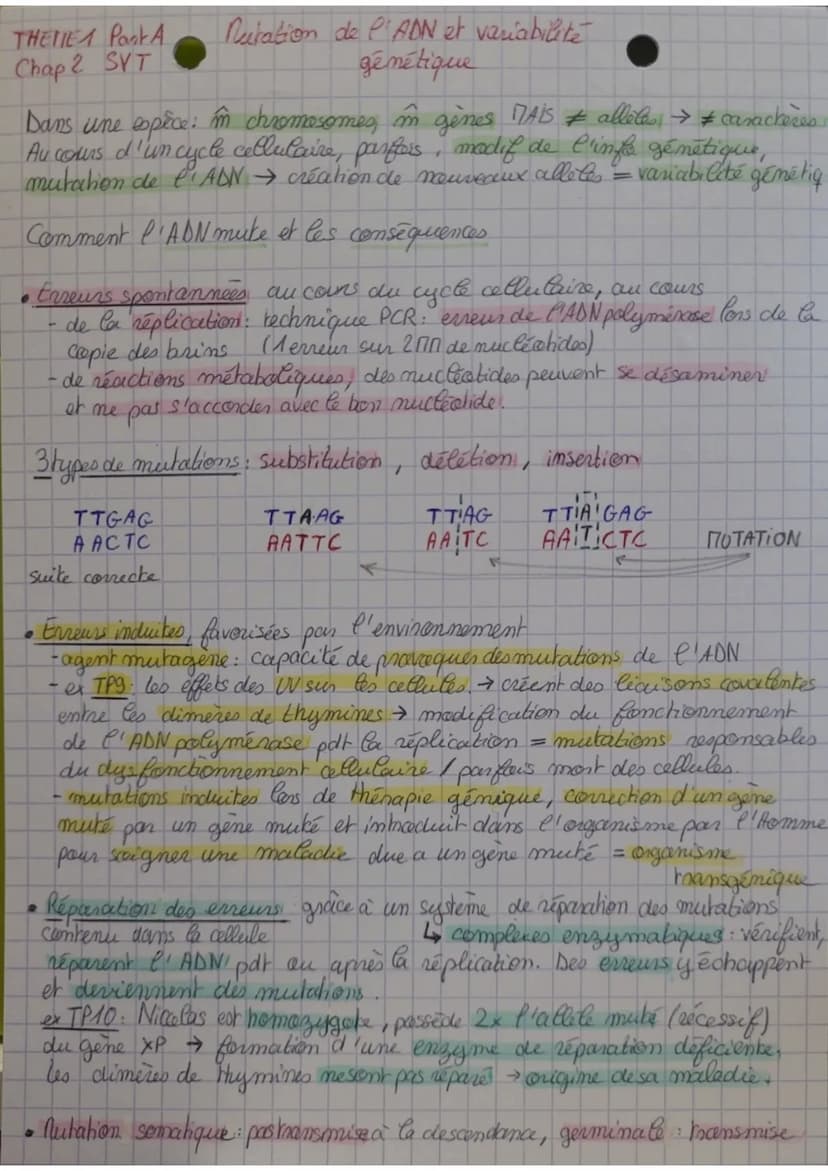 THEME 1 Part A Mutation de l'ADN et variabilité
Chap 2 SVT génétique
Dans une espèce : m̂ chromosomes, m̂ gènes MAIS ≠ allèles → ≠ caractères
Au cours d'un cycle cellulaire, parfois, modif de l'info génétique,
mutation de l'ADN → création de nouveaux allèles = variabilité génétiq
Comment l'ADN mute et les conséquences
• Erreurs spontannées au cours du cycle cellulaire, au cours
- de la réplication : technique PCR : erreur de l'ADN polymérase lors de la
copie des brins (1 erreur sur 2MM de nucléotides)
- de réactions métaboliques, des nucléotides peuvent se désaminer
et ne pas s'accorder avec le bon nucléotide.
3 types de mutations : substitution, délétion, insertion
TTGAG TTAAG TTAG TTAGAG
AACTC AATTC AATC AATCTC MUTATION
suite correcte
• Erreurs induites, favorisées par l'environnement
- agent mutagène : capacité de provoquer des mutations de l'ADN
- ex TP9 : les effets des UV sur les cellules. → créent des liaisons covalentes
entre les dimères de thymines → modification du fonctionnement
de l'ADN polymérase pdt la réplication = mutations responsables
du dysfonctionnement cellulaire / parfois mort des cellules.
- mutations induites lors de thérapie génique, correction d'un gène
muté par un gène muté et introduit dans l'organisme par l'Homme
pour soigner une maladie due a un gène muté = organisme
transgénique
• Réparation des erreurs grâce à un système de réparation des mutations
contenu dans la cellule ↳ complexes enzymatiques : vérifient,
réparent l'ADN pdt ou après la réplication. Des erreurs y échappent
et deviennent des mutations.
ex TP10 : Nicolas est homozygote, possède 2x l'allèle muté (récessif)
du gène XP → formation d'une enzyme de réparation déficiente.
les dimères de thymines ne sont pas réparé → origine de sa maladie.
• Mutation somatique : pas transmise à la descendance, germinale : transmise